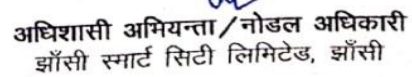 अधिशासी अभियन्ता/नोडल अधिकारी
झाँसी स्मार्ट सिटी लिमिटेड, झाँसी